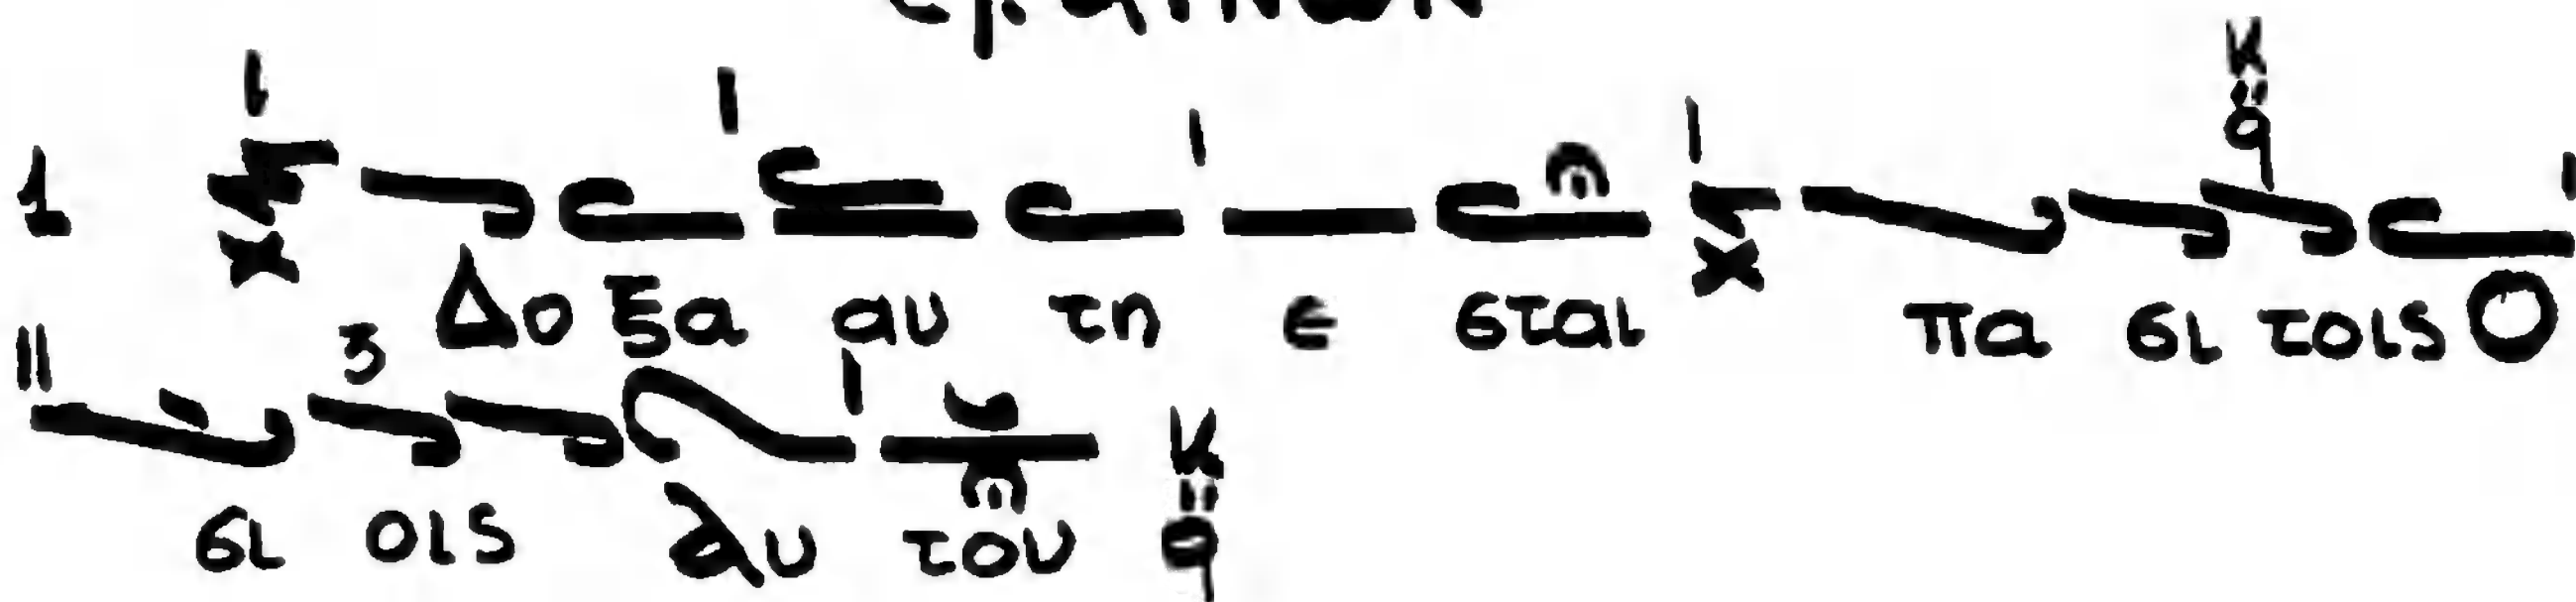 1 Δο ξα αυ τη ε σται πα σι τοις Ο
σι οις αυ του